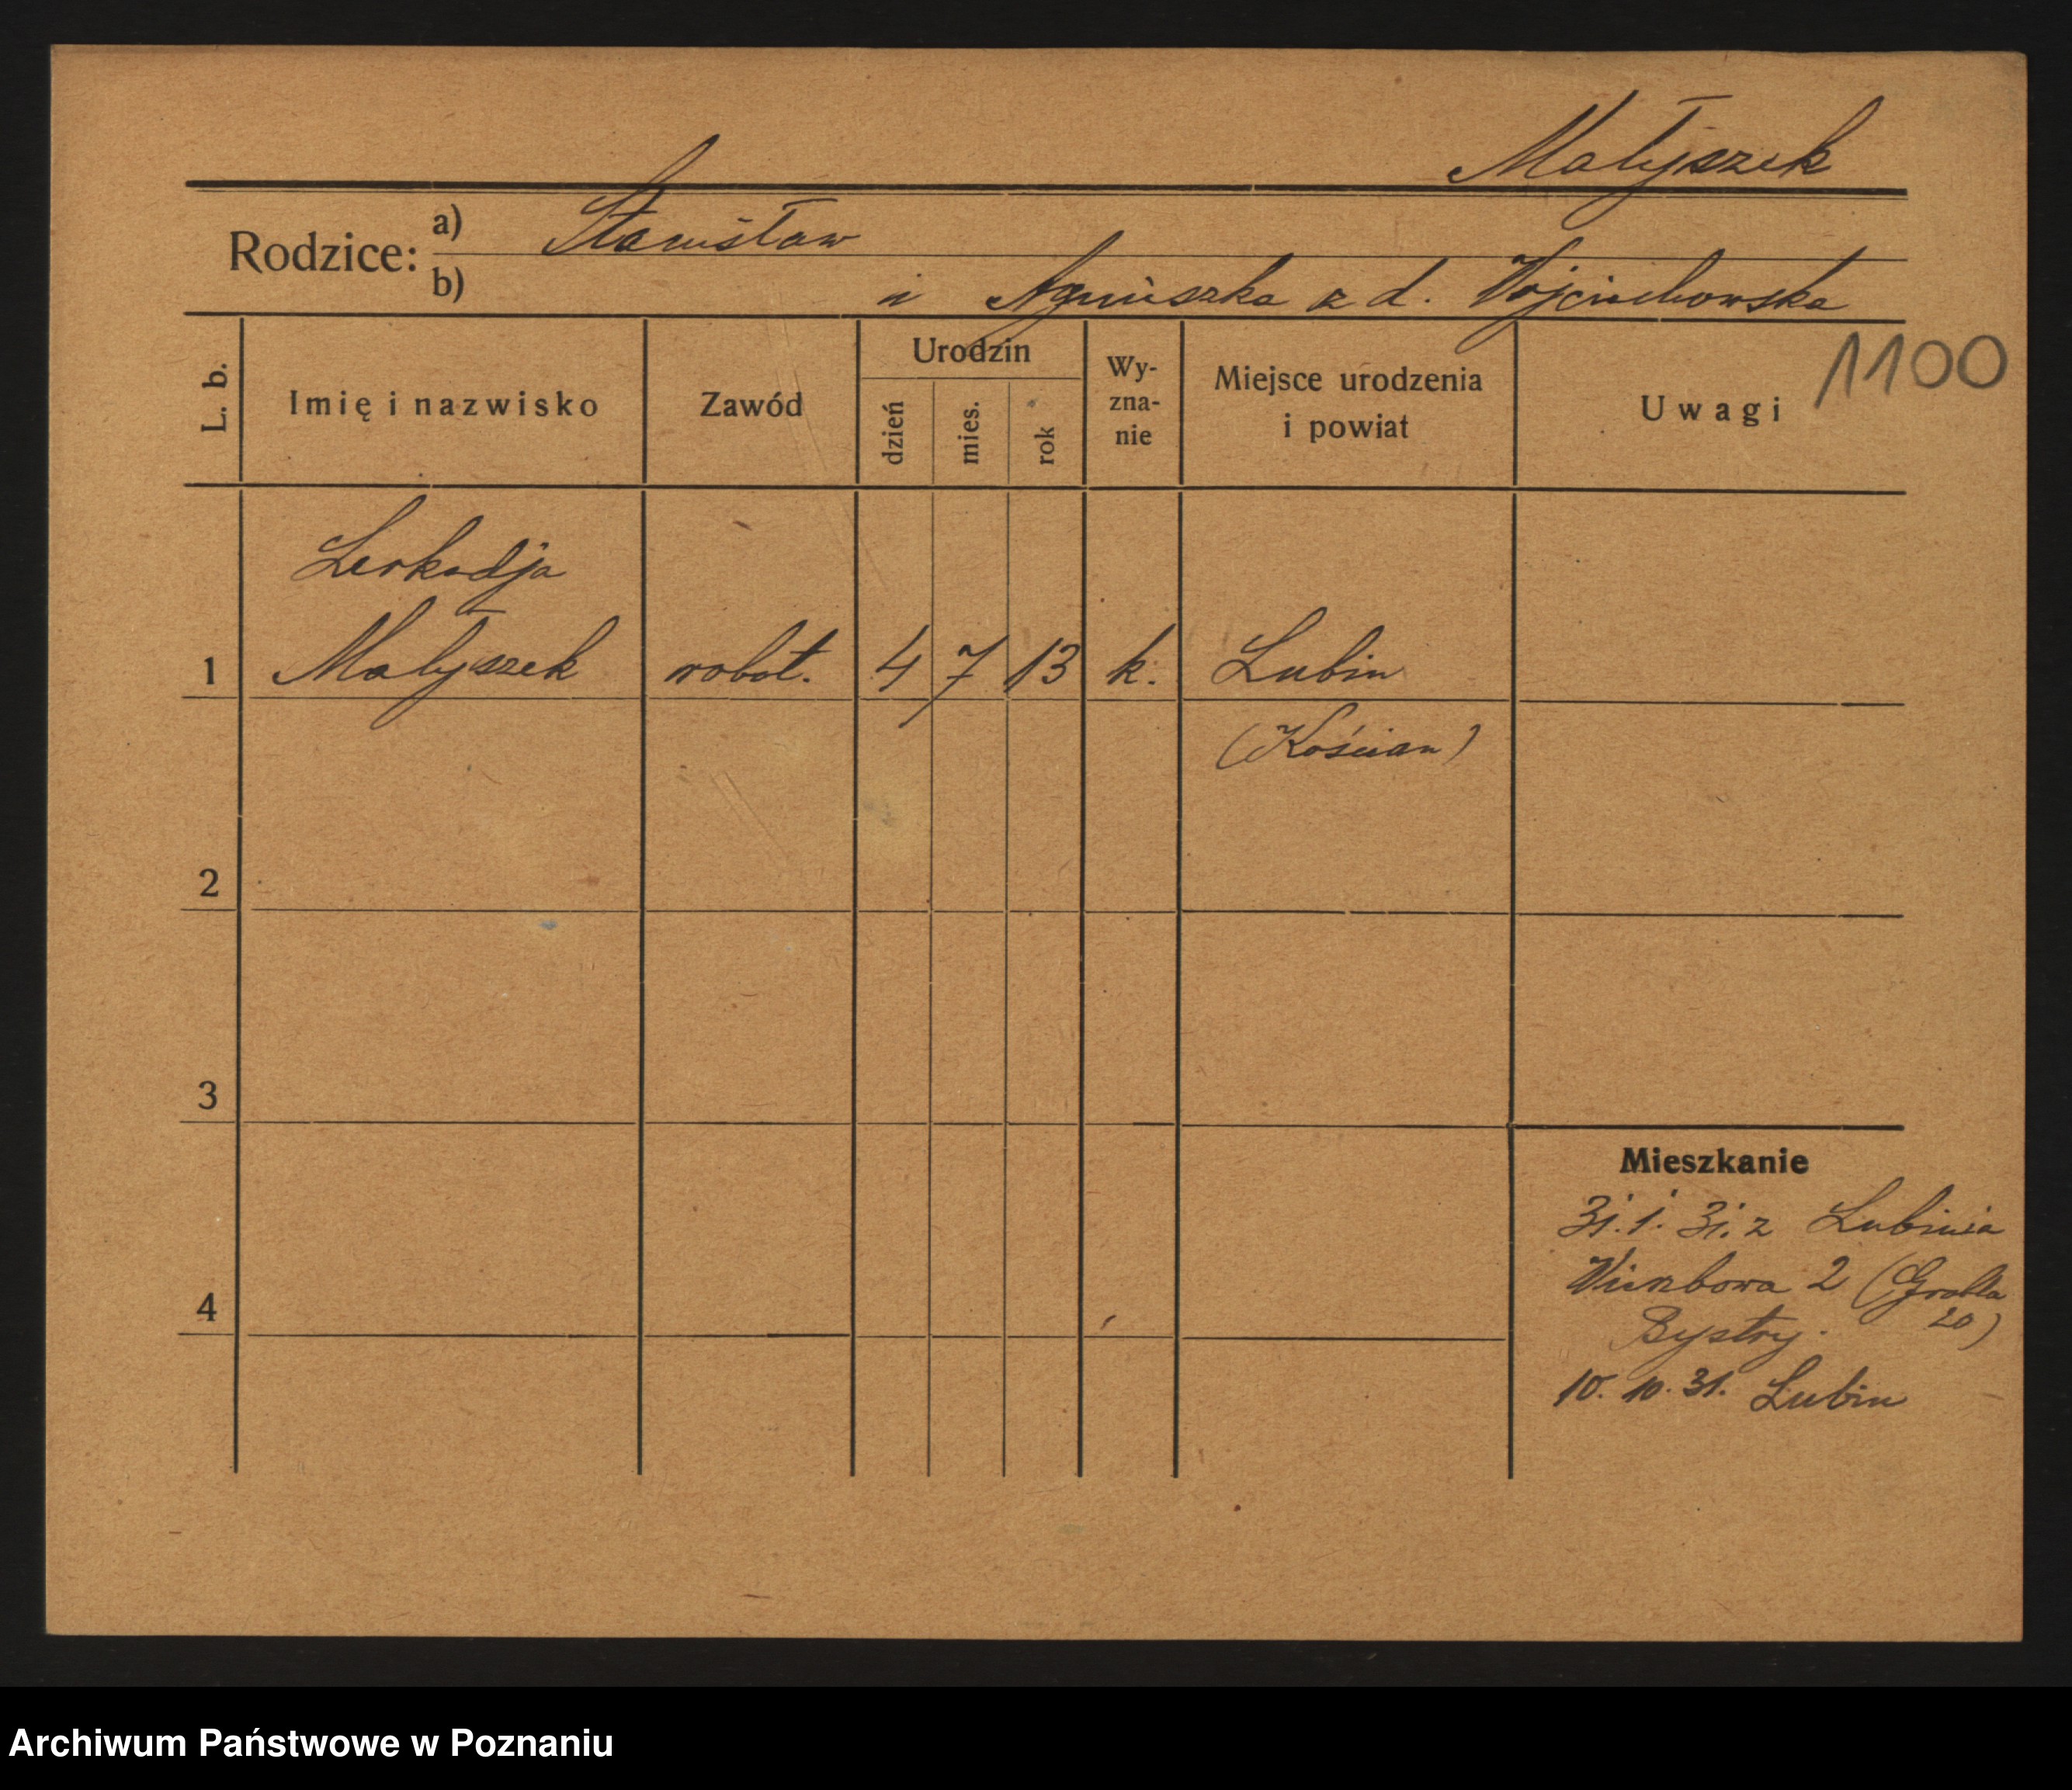 Małyszek
Rodzice: a) Stanisław
b) i Agnieszka z d. Wojciechowska
1100
L. b. Imię i nazwisko Zawód Urodzin dzień mies. rok Wy-zna-nie Miejsce urodzenia i powiat Uwagi
Leokadja
1 Małyszek robot. 4 7 13 k. Lubin
(Kościan)
2
3
Mieszkanie
31.1.31. z Lubinia
Wierzbowa 2 (Grobla
4
20)
Bystry.
10.10.31. Lubin
Archiwum Państwowe w Poznaniu